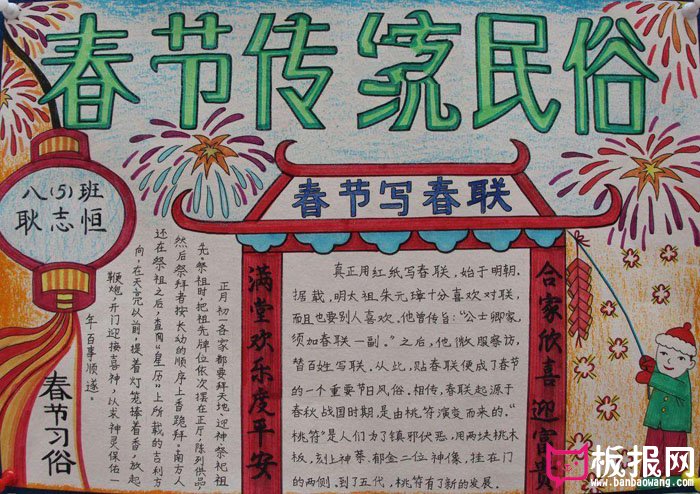 春节传统民俗
八(5)班
耿志恒
春节写春联
满堂欢乐度平安
合家欣喜迎富贵
真正用红纸写春联,始于明朝.
据载,明太祖朱元璋十分喜欢对联,
而且也要别人喜欢.他曾传旨:“公士卿家,
须加春联一副。”之后,他微服察访,
替百姓写联.从此,贴春联便成了春节
的一个重要节日风俗.相传,春联起源于
春秋战国时期,是由桃符演变而来的.“
桃符”是人们为了镇邪伏恶,用两块桃木
板,刻上神荼、郁垒二位神像,挂在门
的两侧,到了五代,桃符有了新的发展.
正月初一各家都要拜天地、迎神祭祀祖
先.祭祖时,把祖先牌位依次摆在正厅,陈列供品,
然后祭拜者按长幼的顺序上香跪拜.南方人
还在祭祖之后,查阅“皇历”上所载的吉利方
向,在天亮以前,提着灯笼捧着香,放起
鞭炮,开门迎接喜神,以求神灵保佑一
年百事顺遂。
春节习俗
板报网
www.banbaowang.com